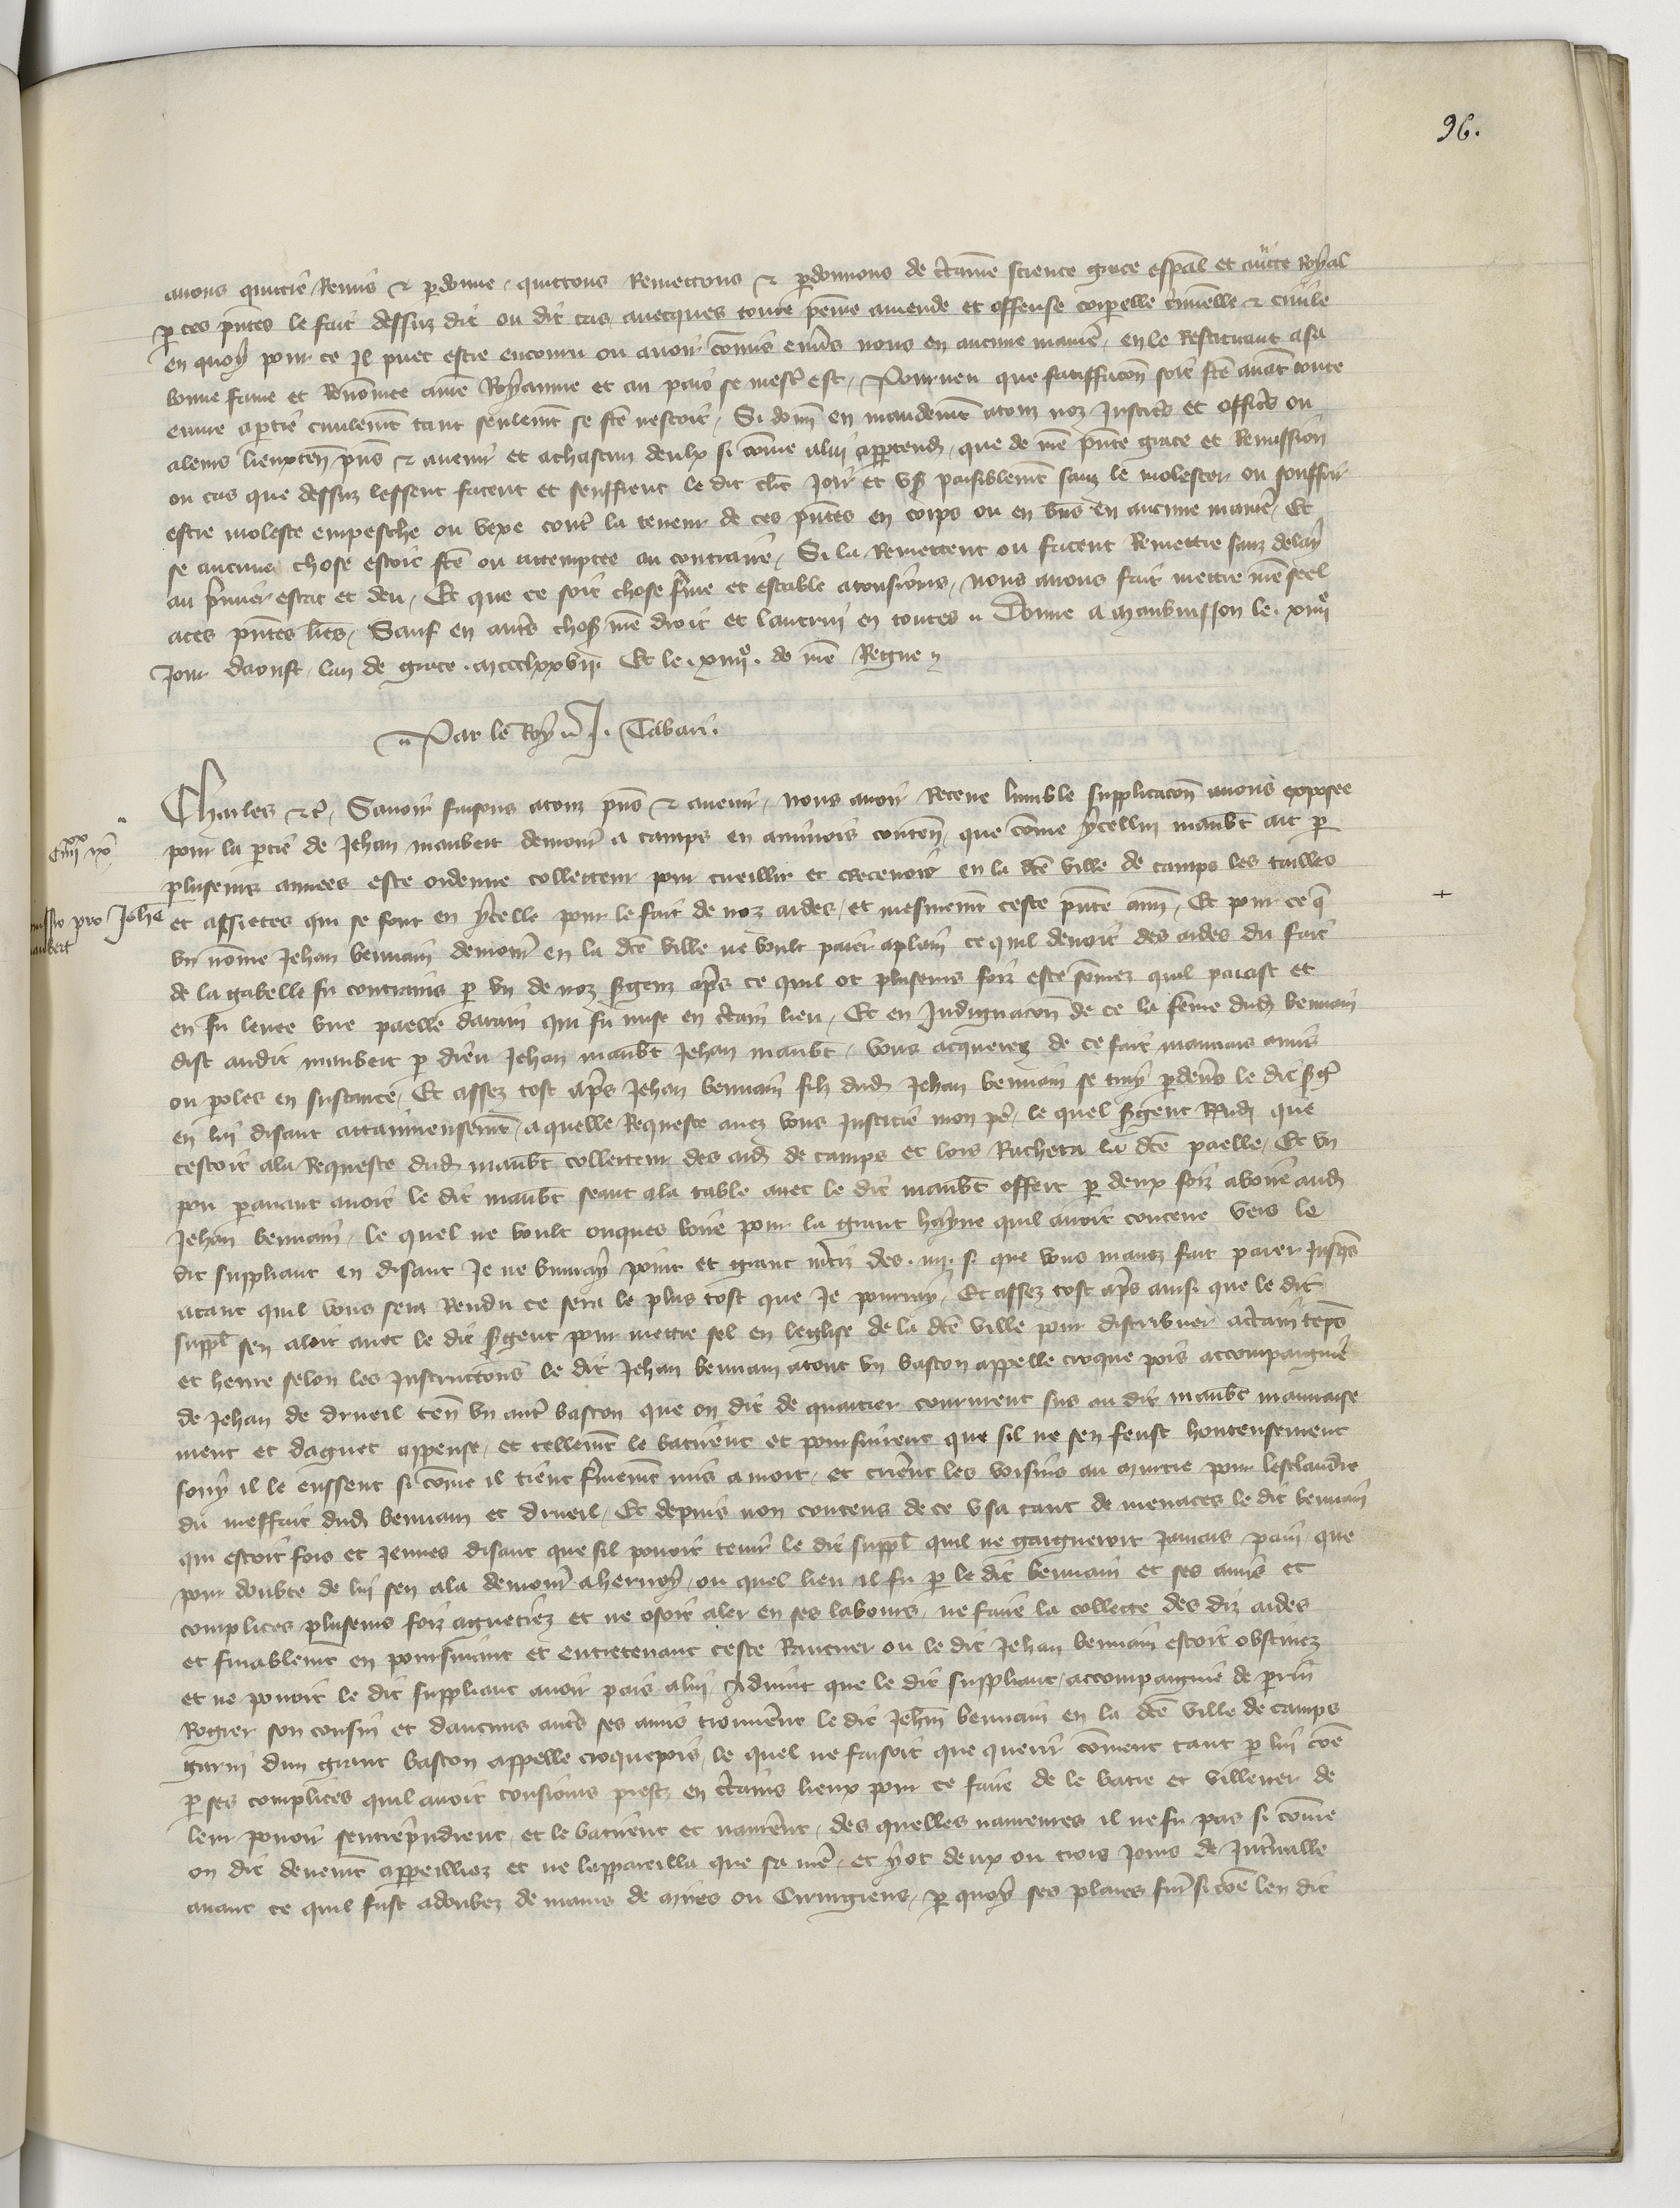 96.
avons quittie Remis & pdonne, quittons Remettons & pdonnons de ctaine science grace espal et aucte Royal
p ces pntes le fait dessuz dit ou dit cas avecques toute peine amende et offense corpelle cminelle & civile
en quoy pour ce Il puet estre encouru ou avoir comis envs nous en aucune manie, en le Restituant a sa
bonne fame et Renomee au Royaume et au pais se mest est, Pourveu que satiffacon soit fte avat toute
euvre aptie civilemt tant seulemt se fte nestoit, Si donn en mandemt atouz noz Justics et officis ou
aleurs lieuxten pns & avenir et achascun deulx si come alui apptendr, que de nre pnte grace et Remission
ou cas que dessuz lessent facent et seuffrent le dit Joir et usr paisiblemt sanz le molester ou souffrir
estre moleste empesche ou vexe contr la teneur de ces pntes en corps ou en bns en aucune manie, Et
se aucune chose estoit fte ou attemptee au contraire, Si la Remettent ou facent Remettre sanz delay
au pmier estat et deu, Et que ce soit chose ferme et estable atousiours, nous avons fait mettre nre seel
aces pntes lres, Sauf en autrs choses nre droit et lautrui en toutes, Donne a Maubuisson le xiiij
Jour daoust lan de grace mccclxxvij. Et le xiiij. de nre Regne
Par le Roy. J. Tabari.
Charles &c, Savoir faisons atouz pns & avenir, nous avoir Receue lumble supplicacon avons exposee
pour la ptie de Jehan maubert demour a camps en aminois conten, que come ycellui maubt ait p
pluseurs annees este ordenne collecteur pour cueillir et Recevoir en la dte ville de camps les tailles
et assietes qui se font en ycelle pour le fait de noz aides, et mesmemt ceste pnte ann, Et pour ce q
un nome Jehan bennain demour en la dte ville ne voult paier aplain ce quil devoit des aides du fait
de la gabelle fu contrains p un de noz sgenz aprs ce quil ot pluseurs foiz este somez quil paiast et
en fu levee une paelle darain qui fu mise en ctain lieu, Et en Indignacon de ce la feme dud bennain
dist audit maubert p dieu Jehan maubt Jehan maubt, vous acquerez de ce fait mauvais amis
ou poles en sustance, Et assez tost aprs Jehan bennain filz dud Jehan bennain se tray pdevs le dit sgt
en lui disant attaineusemt, aquelle Requeste avez vous Justicie mon pe, le quel sgent Rndi que
cestoit ala Requeste dud maubt collecteur des aid de camps et lors Racheta la dte paelle, Et un
pou pavant avoit le dit maubt seant ala table avec le dit maubt offert p deux foiz aboire aud
Jehan bennain, le quel ne voult onques boire pour la grant hayne quil avoit conceue vers le
dit suppliant en disant Je ne buvray point et grant merciz des iiij s. que vous mavez fait paier Jusqs
atant quil vous sera Rendu ce sera le plus tost que Je pourray, Et assez tost aprs ainsi que le dit
suppl sen aloit avec le dit sgent pour mettre sel en leglise de la dte ville pour distribuer actain teps
et heure selon les Instructions le dit Jehan bennain atout un baston appelle croque pois accompaignie
de Jehan de drueil ten un autr baston que on dit de quartier coururent sus au dit maubt mauvaise
ment et daguet appense, et tellemt le batirent et poursuirent que sil ne sen feust honteusement
fouy il le eussent si come il tient frmemt mis a mort, et crient les voisins au murtre pour lesclandre
du meffait dud bennain et drueil, Et depuis non contens de ce usa tant de menaces le dit bennain
qui estoit fors et Jeunes disant que sil povoit tenir le dit suppl quil ne gaigneroit Jamais pain, que
pour doubte de lui sen ala demour ahernoy, ou quel lieu il fu p le dit bennain et ses amis et
complices pluseurs foiz aguetiez et ne osoit aler en ses labours, ne faire la collecte des diz aides
et finablemt en poursuiant et entretenant ceste Rancuer ou le dit Jehan bennain estoit obstinez
et ne povoit le dit suppliant avoir pais alui, Advint que le dit suppliant, accompaignie de prin
Rogier son cousin et daucuns autrs ses amis trouvert le dit Jehn bennain en la dte ville de camps
garni dun grant baston appelle croquepois, le quel ne faisoit que querir coment tant p lui coe
p ses complices quil avoit tousiours prestz en ctains lieux pour ce faire de le batre et villener de
leur povoir sentreprndrent, et le batirent et navrert, des quelles navreures il ne fu pas si come
on dit deuemt appeilliez et ne lappareilla que sa mre, et yot deux ou trois Jours de Jntvalle
avant ce quil fust adoubez de mains de mires ou Cirurgiens, p quoy ses plaies furt si coe len dit
iiij xx ix
missio pro Johe
maubert